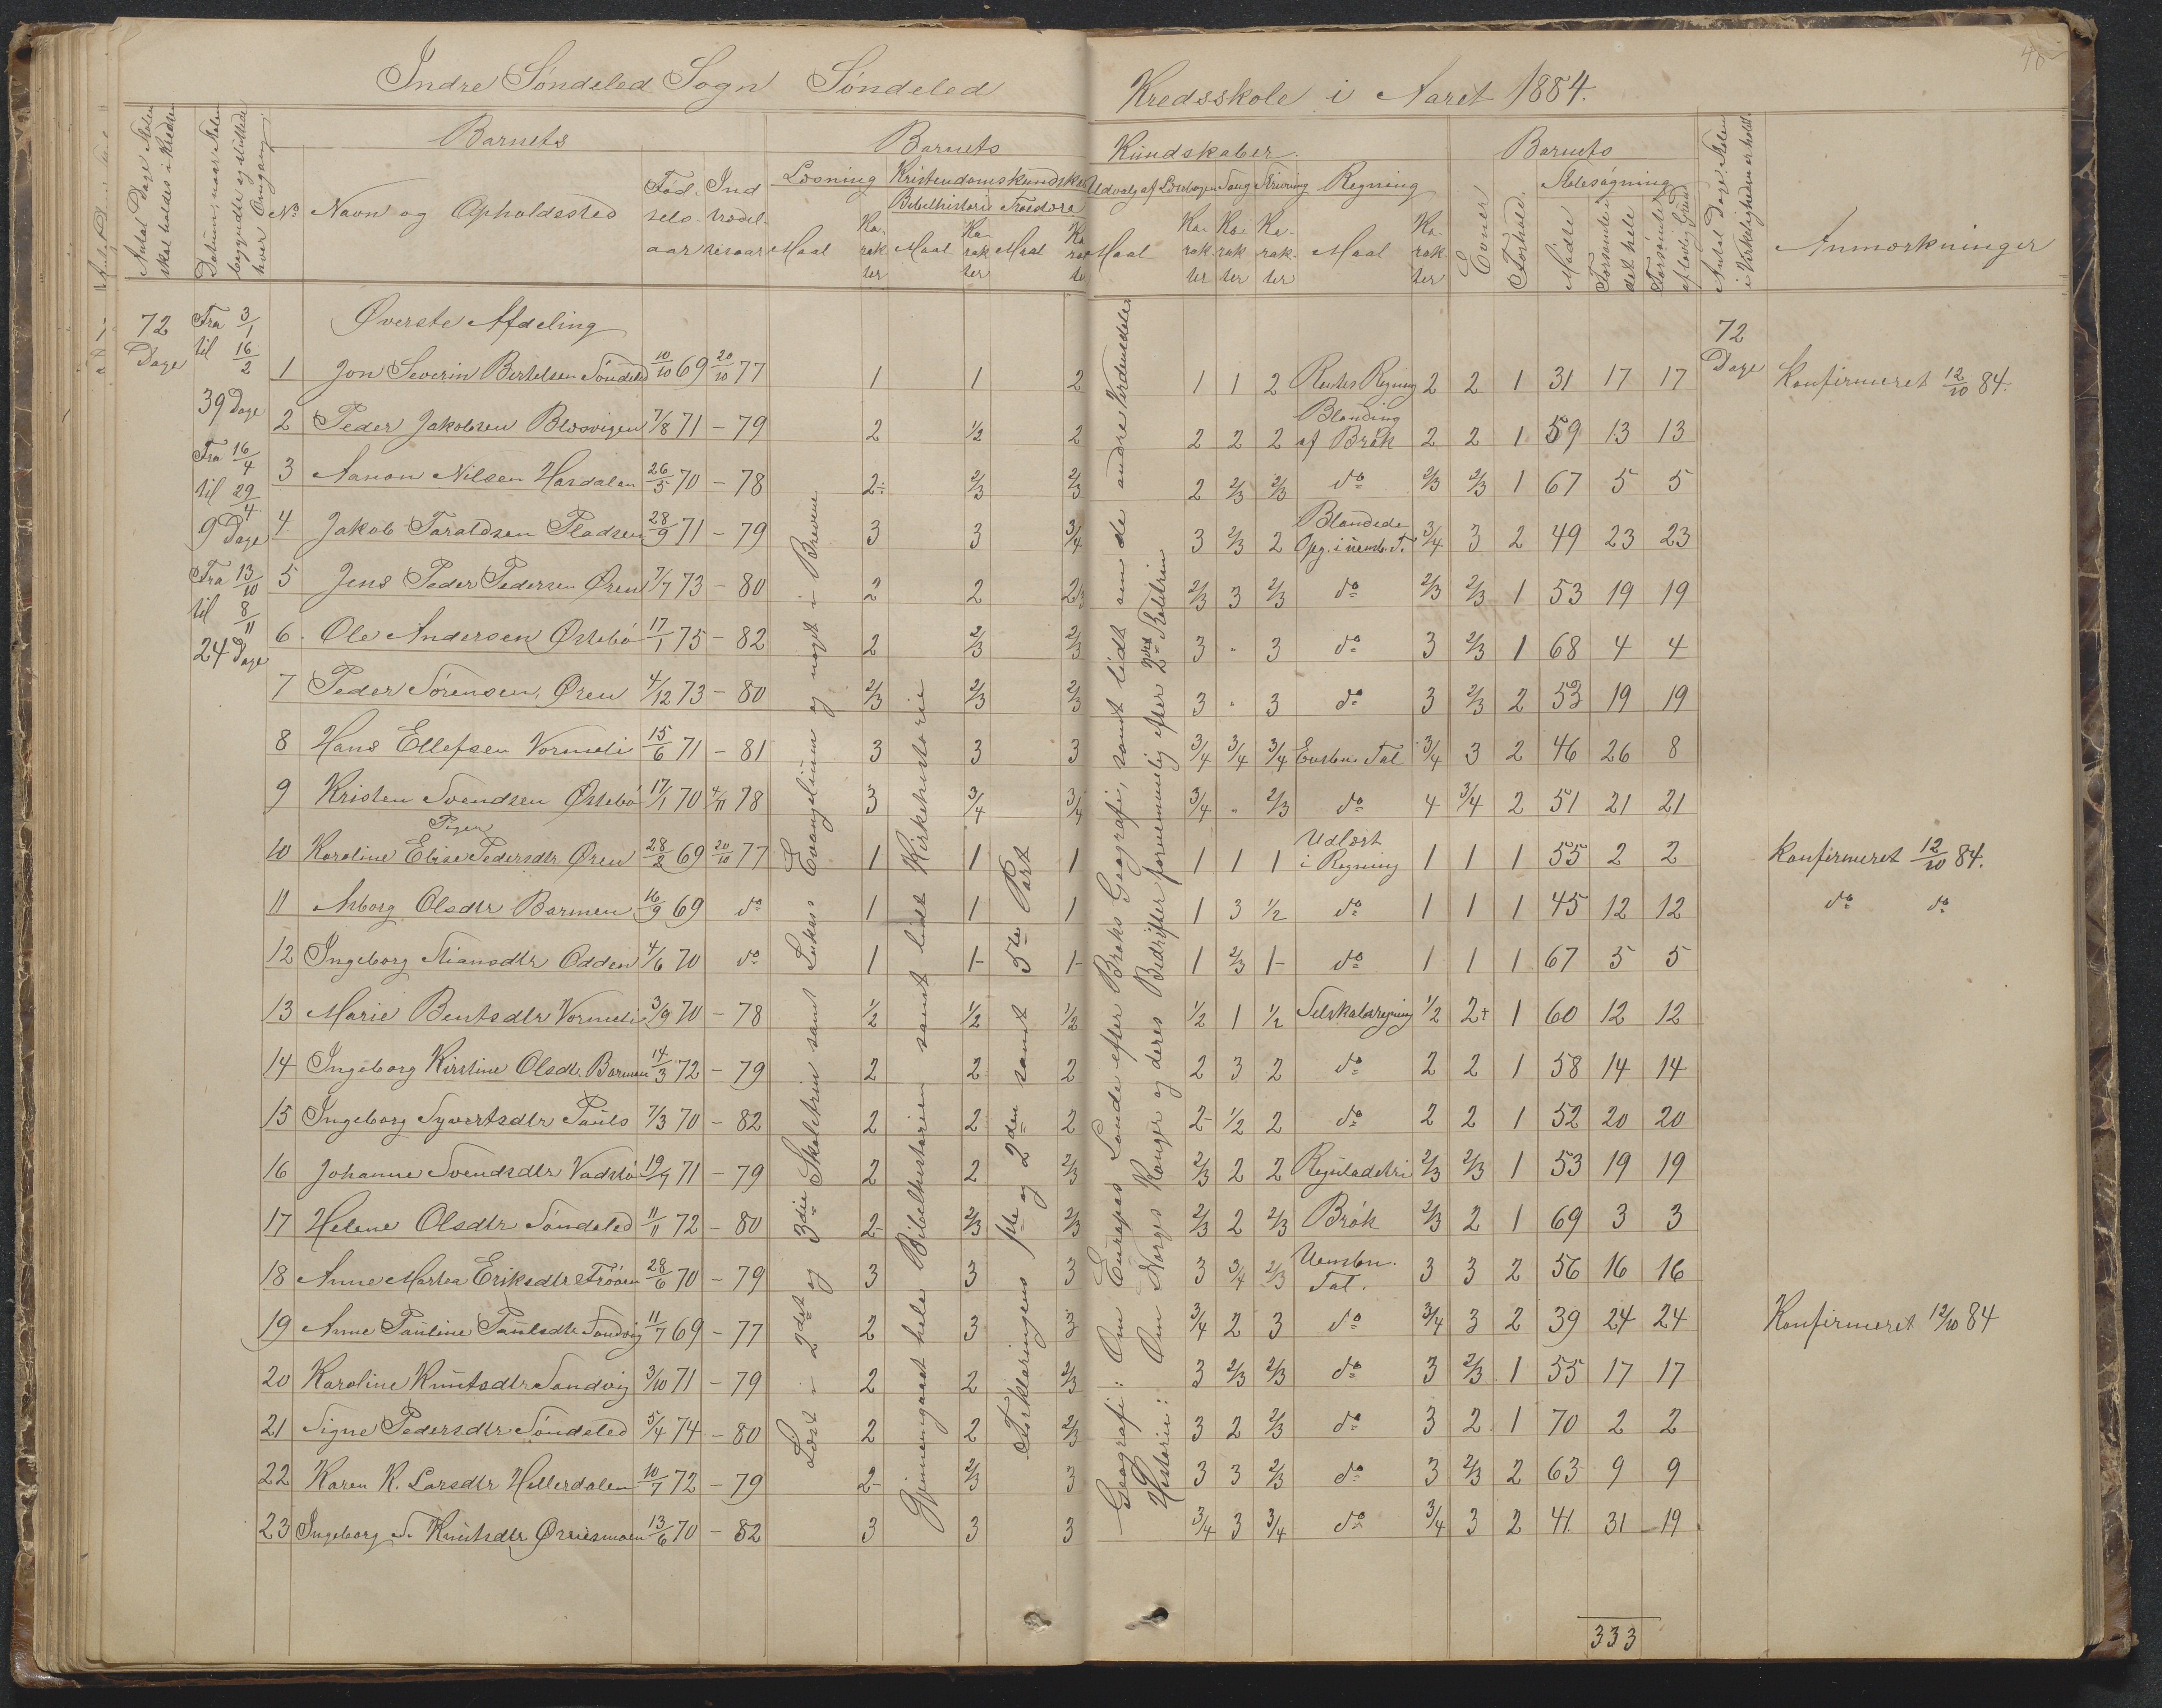 Indre Söndeled Sogn Söndeled Kredsskole i Aaret 1884.
Antal Dage Skolen skal holdes i Kredsen
Datum, naar Skolen begyndte og sluttede hver Omgang
Barnets
No Navn og Opholdssted
Fødselsaar
Indtrædelsesaar
Barnets Kundskaber.
Læsning Maal Karakter
Kristendomskundskab
Bibelhistorie Maal Karakter
Troeslære Maal Karakter
Udvalg af Læsebogen Maal Karakter
Sang Karakter
Skrivning Karakter
Regning Maal Karakter
Barnets
Evner
Forhold
Skolesøgning
Mødte
Forsømte i det hele
Forsømte af lovlig Grund
Antal Dage Skolen i Virkeligheden er holdt
Anmærkninger
72 Dage
Fra 3/1 til 16/2
39 Dage
Fra 16/4 til 29/4
9 Dage
Fra 13/10 til 8/11
24 Dage
Øverste Afdeling
72 Dage
1 Jon Severin Bertelsen Söndeled 10/10 69 20/10 77 1 1 2 1 1 2 Rentes Regning 2 2 1 31 17 17 Konfirmeret 12/10 84.
2 Peder Jakobsen Blæsvigen 7/8 71 - 79 2 1/2 2 2 2 2 Blanding af Brök 2 2 1 59 13 13
3 Aanon Nilsen Hasdalen 26/5 70 - 78 2÷ 2/3 2/3 2 2/3 2/3 do 2/3 2/3 1 67 5 5
4 Jakob Taraldsen Pladsen 28/9 71 - 79 3 3 3/4 3 2/3 2 Blandede Opg. i uemb. T. 3/4 3 2 49 23 23
5 Jens Peder Pedersen Øren 7/7 73 - 80 2 2 2/3 2/3 3 2/3 do 2/3 2/3 1 53 19 19
6. Ole Andersen Østebö 17/1 75 - 82 2 2/3 2/3 3 " 3 do 3 2/3 1 68 4 4
7 Peder Sörensen Øren 4/12 73 - 80 2/3 2/3 2/3 3 " 3 do 3 2/3 2 53 19 19
8 Hans Ellefsen Vormeli 15/6 71 - 81 3 3 3 3/4 3/4 3/4 Eensbn. Tal 3/4 3 2 46 26 8
9 Kristen Svendsen Østebö 17/1 70 4/11 78 3 3/4 3/4 3/4 " 2/3 do 4 3/4 2 51 21 21
Piger
10 Karoline Elise Pedersdtr Øren 28/2 69 20/10 77 1 1 1 1 1 1 Udlært i Regning 1 1 1 55 2 2 Konfirmeret 12/10 84.
11 Asborg Olsdtr Barmen 16/9 69 do 1 1 1 1 3 1/2 do 1 1 1 45 12 12 do do
12 Ingeborg Stiansdtr Odden 4/6 70 do 1 1- 1- 1 2/3 1- do 1 1 1 67 5 5
13 Marie Bentsdtr Vormeli 3/9 70 - 78 1/2 1/2 1/2 1/2 1 1/2 Selskabsregning 1/2 2+ 1 60 12 12
14 Ingeborg Kirstine Olsdtr. Barmen 14/3 72 - 79 2 2 2 2 3 2 do 2 2 1 58 14 14
15 Ingeborg Syvertsdtr Pauls 7/3 70 - 82 2 2 2 2- 1/2 2 do 2 2 1 52 20 20
16 Johanne Svendsdtr Vadstö 19/9 71 - 79 2 2 2/3 2/3 2 2 Reguladetri 2/3 2/3 1 53 19 19
17 Helene Olsdtr Söndeled 11/11 72 - 80 2- 2/3 2/3 2/3 2 2/3 Brök 2/3 2 1 69 3 3
18 Anne Martea Eriksdtr Fröåsen 28/6 70 - 79 3 3 3 3 3/4 2/3 Uensbn. Tal. 3 3 2 56 16 16
19 Anne Pauline Paulsdtr Sandvig 11/7 69 - 77 2 3 3 3/4 2 3 do 3/4 3 2 39 24 24 Konfirmeret 12/10 84
20 Karoline Knutsdtr Sandvig 3/10 71 - 79 2 2 2/3 3 2/3 2/3 do 3 2/3 1 55 17 17
21 Signe Pedersdtr Söndeled 5/4 74 - 80 2 2 2/3 3 2 2/3 do 3 2 1 70 2 2
22 Karen K. Larsdtr Hellerdalen 10/7 72 - 79 2- 2/3 3 3 3 2/3 do 3 2/3 2 63 9 9
23 Ingeborg Knutsdtr 13/6 70 - 82 3 3 3 3/4 3 3/4 do 3/4 3 2 41. 31 19
333
Læst i 2det og 3die Skoletrin samt Lukas Evangelium og noget i Brevene
Gjennemgaaet hele Bibelhistorien samt lidt Kirkehistorie
Forklaringens 1ste og 2den samt 5te Part
Geografi: Om Europas Lande efter Broks Geografi, samt lidt om de andre Verdensdele
Historie: Om Norges Konger og deres Bedrifter fornemmelig efter 2det Skoletrin